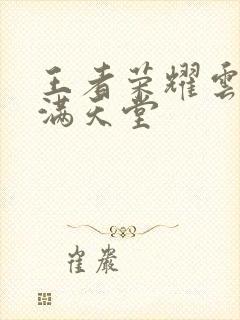 王者荣耀雲
满天堂
崔巖